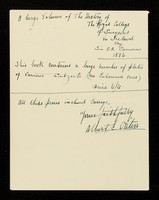 A large Volume of The History of
The Royal College
of Surgeons
in Ireland
by
Sir C.A. Cameron
1886
This book contains a large number of plates
of various subjects (see Coloured ones)
Price 6/6
All these prices without carriage.
Yours faithfully
Albert E. Waters